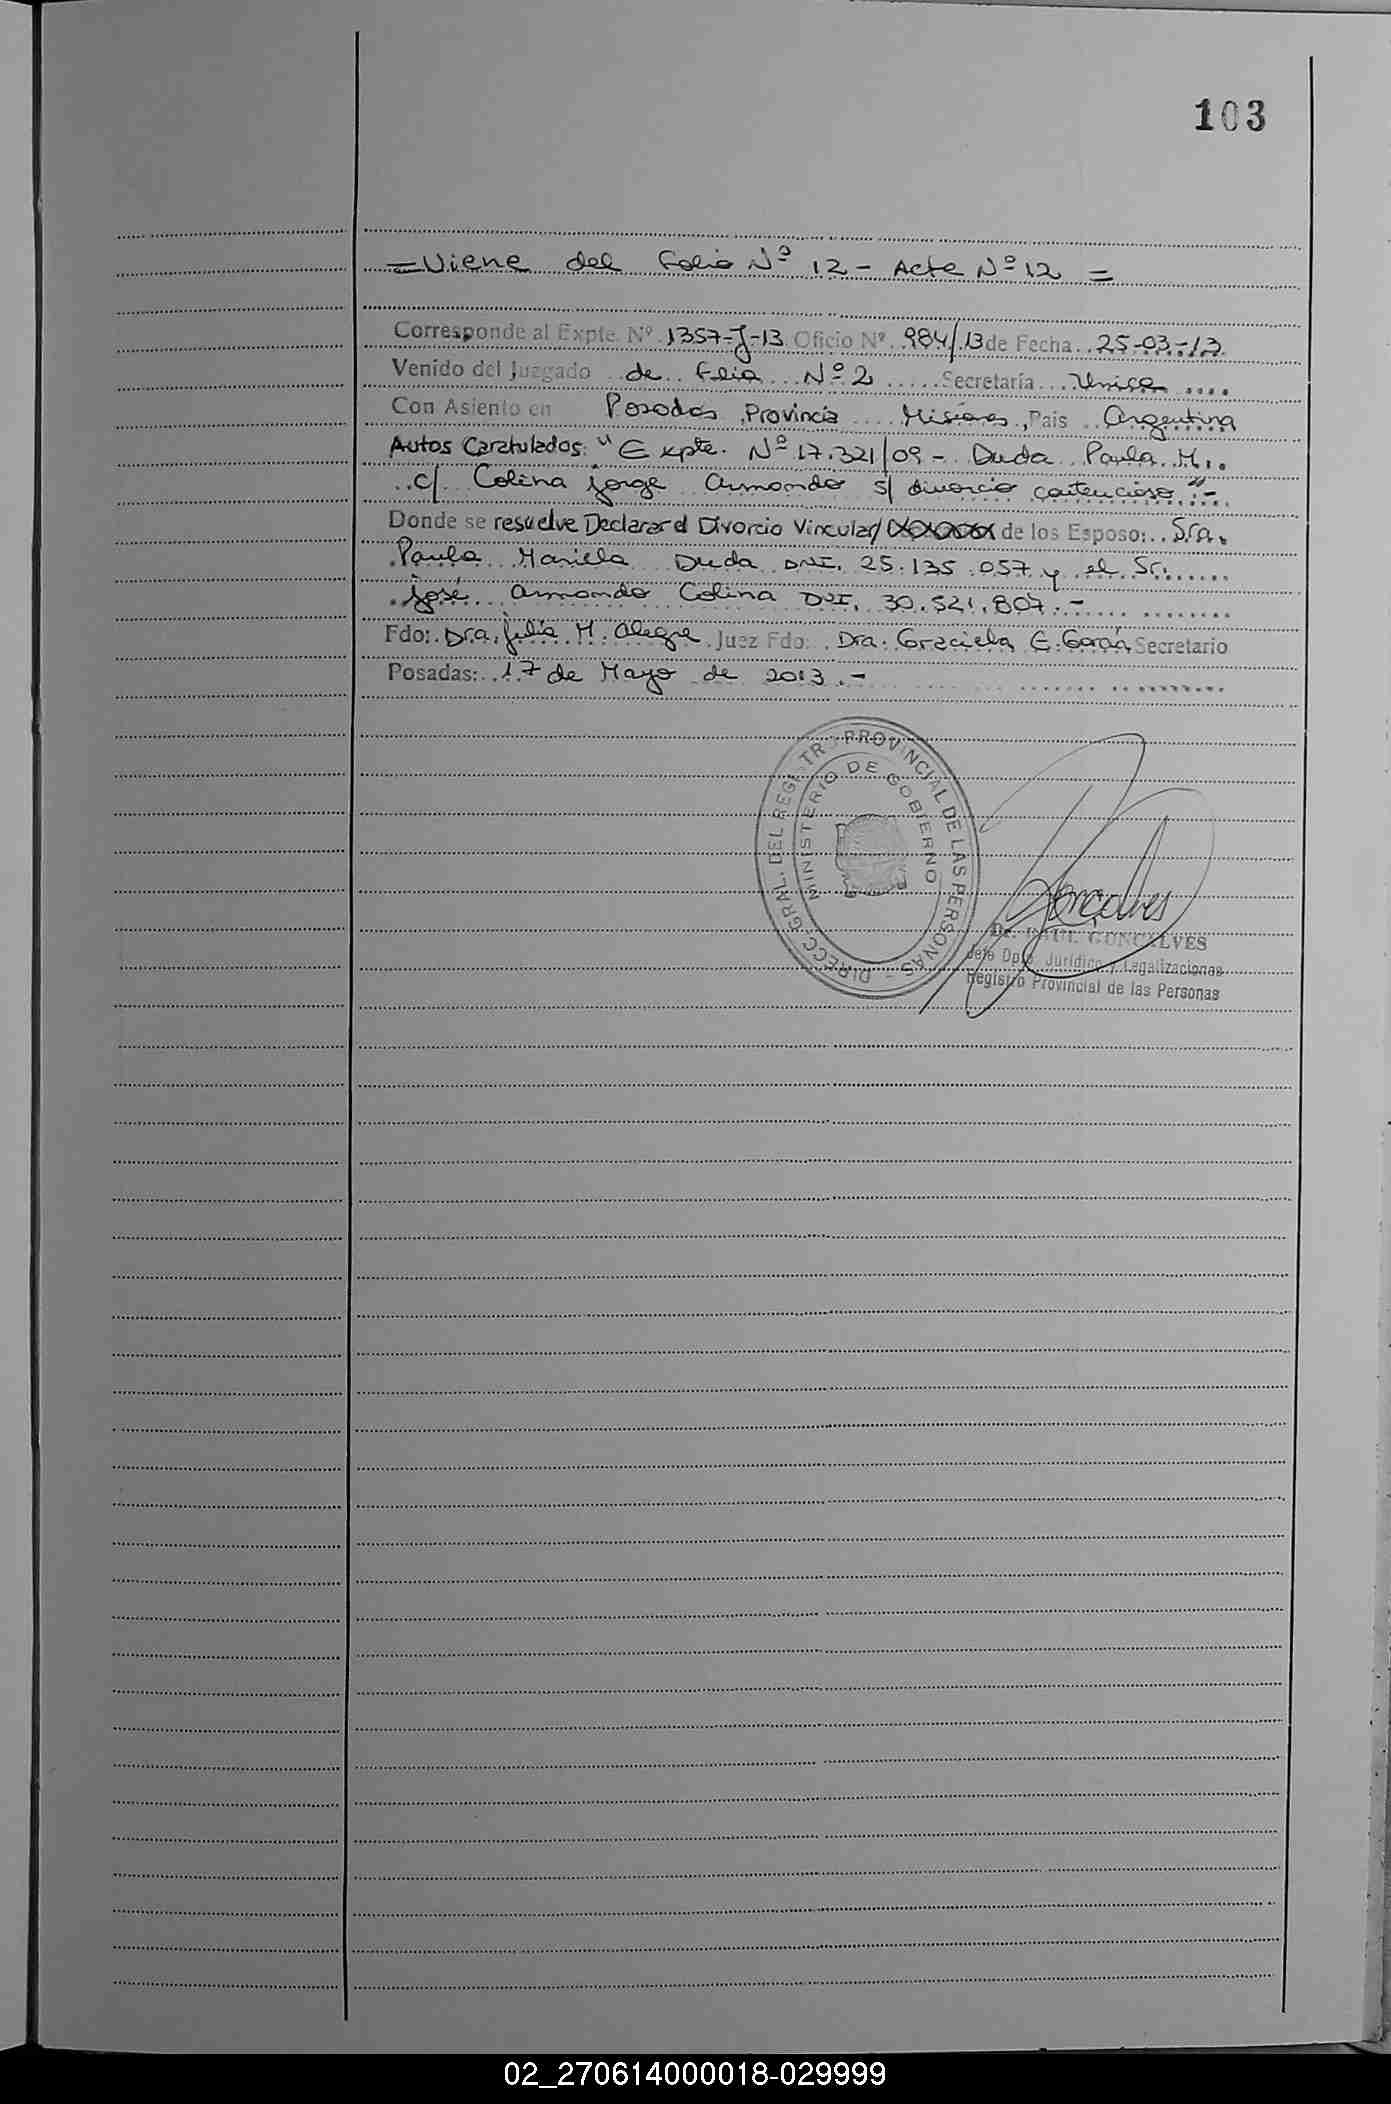 103
= Viene del Folio Nº 12 - Acta Nº 12 =
Corresponde al Expte. Nº 1357-J-13 Oficio Nº 984/13 de Fecha 25-03-13
Venido del Juzgado de Flia Nº 2 Secretaría Unica
Con Asiento en Posadas, Provincia Misiones, País Argentina
Autos Caratulados: "Expte. Nº 17.321/09 - Duda Paula M.
c/ Colina Jorge Armando s/ divorcio contencioso".-
Donde se resuelve Declarar el Divorcio Vincular/ de los Esposo: Sra.
Paula Mariela Duda DNI. 25.135.057 y el Sr.
José Armando Colina DNI. 30.521.807.-
Fdo: Dra. Julia M. Alegre Juez Fdo: Dra. Graciela E. Secretario
Posadas: 17 de Mayo de 2013.-
DIRECC. GRAL. DEL REGISTRO PROVINCIAL DE LAS PERSONAS -
MINISTERIO DE GOBIERNO
Gonçalves
Dr. RAUL GONCALVES
Jefe Dpto. Jurídico y Legalizaciones
Registro Provincial de las Personas
02_270614000018-029999